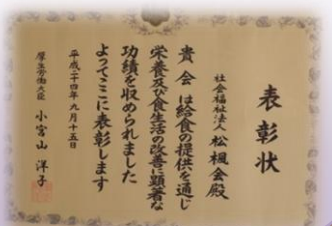 表彰状
社会福祉法人 松楓会殿
貴会は給食の提供を通じ
栄養及び食生活の改善に顕著な
功績を収められました
よってここに表彰します
平成二十四年九月十五日
厚生労働大臣 小宮山洋子